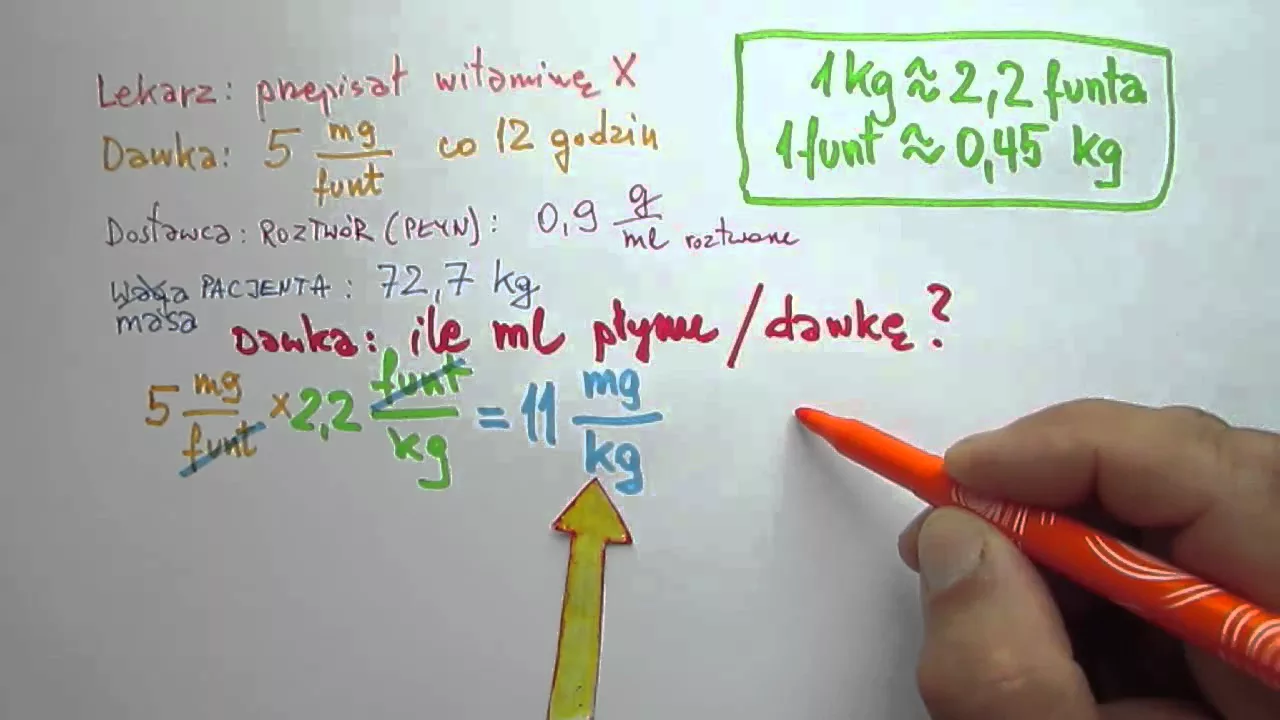 Lekarz: przepisał witaminę X
Dawka: 5 mg/funt co 12 godzin
Dostawca: ROZTWÓR (PŁYN): 0,9 g/ml roztworu
Waga PACJENTA: 72,7 kg
masa
Dawka: ile ml płynu/dawkę?
5 mg/funt × 2,2 funt/kg = 11 mg/kg
1 kg ≈ 2,2 funta
1 funt ≈ 0,45 kg